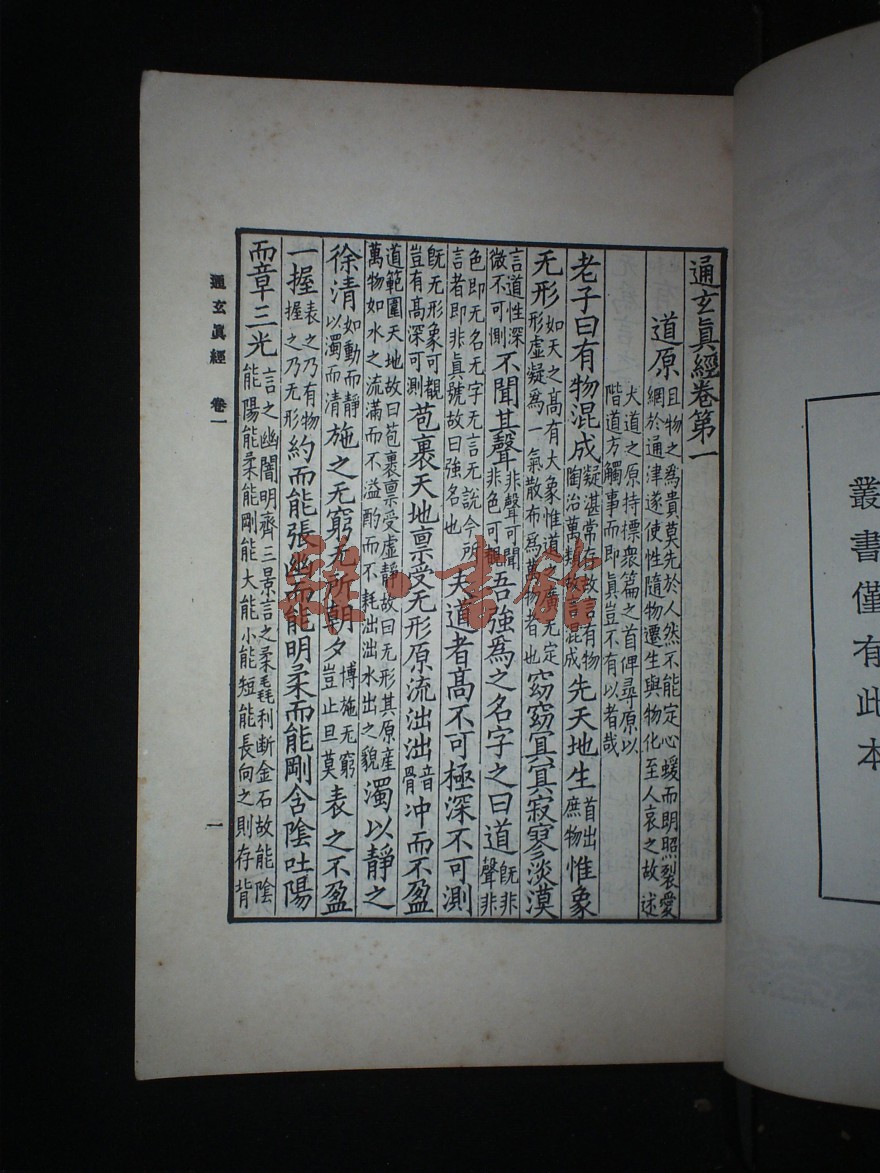 叢書僅有此本
通玄眞經卷第一
道原 且物之為貴莫先於人然不能定心蝯而明照裂愛網於通津遂使性隨物遷生與物化至人哀之故述
大道之原持標衆篇之首俾尋原以階道方觸事而即眞豈不有以者哉
老子曰有物混成 凝湛常存故言有物陶冶萬類故言混成 先天地生 首出庶物 惟象
无形 如天之高有大象惟道廣无定形虛凝為一氣散布為萬物者也 窈窈冥冥寂寥淡漠
言道性深微不可測 不聞其聲 非聲可聞非色可觀 吾強為之名字之曰道 旣非聲非
色即无名无字无言无說今所言者即非眞號故曰強名也 夫道者高不可極深不可測
旣无形象可觀豈有高深可測 苞裹天地禀受无形原流泏泏 音骨 冲而不盈
道範圍天地故曰苞裹禀受虛靜故曰无形其原產萬物如水之流滿而不溢酌而不耗泏泏水出之貌 濁以靜之
徐清 如動而靜以濁而清 施之无窮无所朝夕 博施无窮豈止旦莫 表之不盈
一握 表之乃有物握之乃无形 約而能張幽而能明柔而能剛含陰吐陽
而章三光 言之幽闇明齊三景言之柔毳利断金石故能陰能陽能柔能剛能大能小能短能長向之則存背
通玄眞經 卷一
一
雜·書館